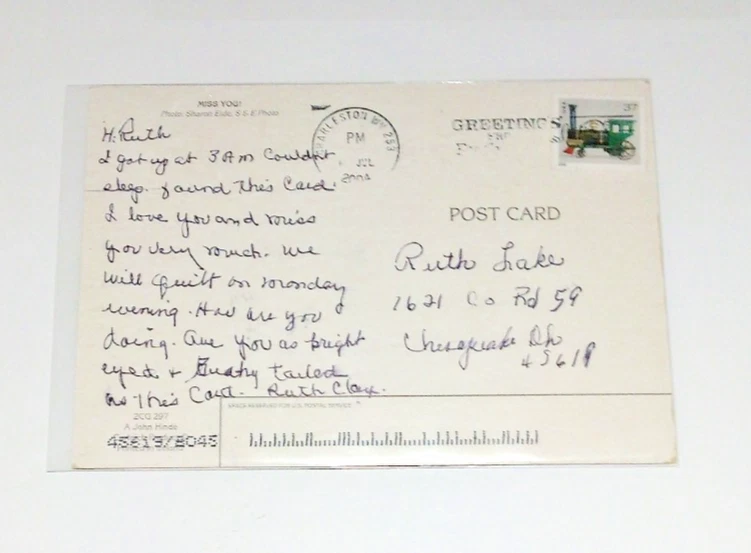 MISS YOU!
Photo: Sharon Eide, S & E Photo
CHARLESTON WV 253
PM
JUL
2004
GREETINGS
37
Hi Ruth
I got up at 3 AM Couldn't
sleep. found This Card.
I love you and miss
you very much. We
will quilt on monday
evening. How are you
doing. Are you as bright
eyed & Bushy tailed
as This Card. Ruth Clay.
POST CARD
Ruth Lake
1621 Co Rd 59
Chesapeake Oh
45619
SPACE RESERVED FOR U.S. POSTAL SERVICE
2CG 297
A John Hinde
45619/8045